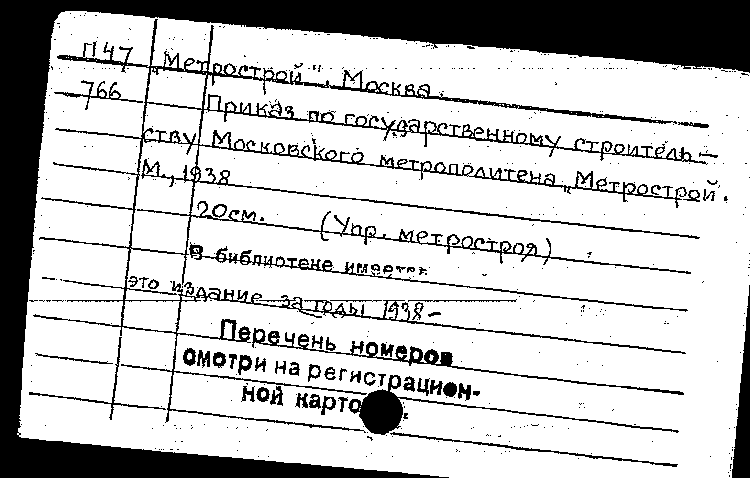 П47 „Метрострой". Москва.
766 Приказ по государственному строитель-
ству Московского метрополитена „Метрострой.
М., 1938
20см. (Упр. метростроя)
В библиотеке имеется
это издание за годы 1938-
Перечень номеров
смотри на регистрацион-
ной